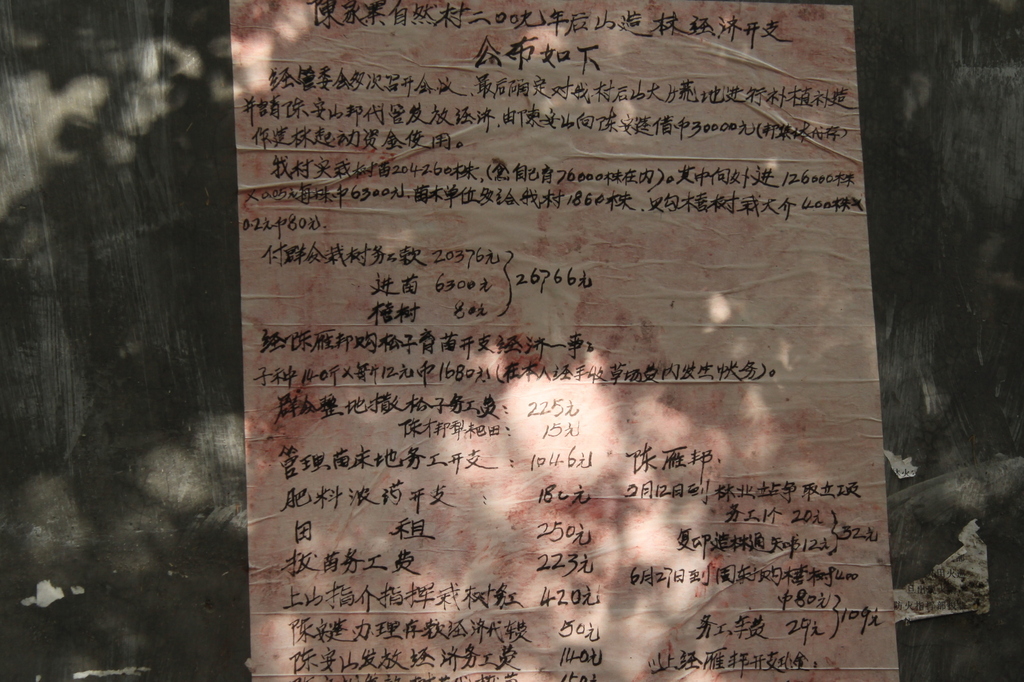 陳家黑自然村二00九年后山造林经济开支
公布如下
经管委会多次召开会议,最后确定对我村后山大片荒地进行补植补造
并请陈安山邦代管发放经济.由陈安山向陈安莲借币30000元
作造林起动资金使用。
我村实栽树苗204260株,(含自己育76000株在内)。其中向外进126000株
×0.05元每株币6300元.苗木单位多给我村1860株.
0.2元币80元.
付群众栽树务工款 20376元
进苗 6300元
樯树 80元
26766元
经陈雁邦购松子育苗开支经济一事:
子种140斤×每斤12元币1680元(在本人经手收草场费内发生
群众整地撒松子务工费: 225元
犁耙田: 15元
管理苗床地务工开支: 1046元
肥料农药开支: 180元
田 租 250元
拔苗务工费 223元
上山指介指挥栽树务工 420元
陈安莲办理存款经济代转费 50元
陈安山发放经济务工费 140元
陈雁邦.
3月12日到林业站争取立项
务工1个 20元
复印造林通知书12元
32元
6月27日到周东江购樯树400
币80元
务工车费 29元
109元
以上经雁邦开支现金:
防火指挥部